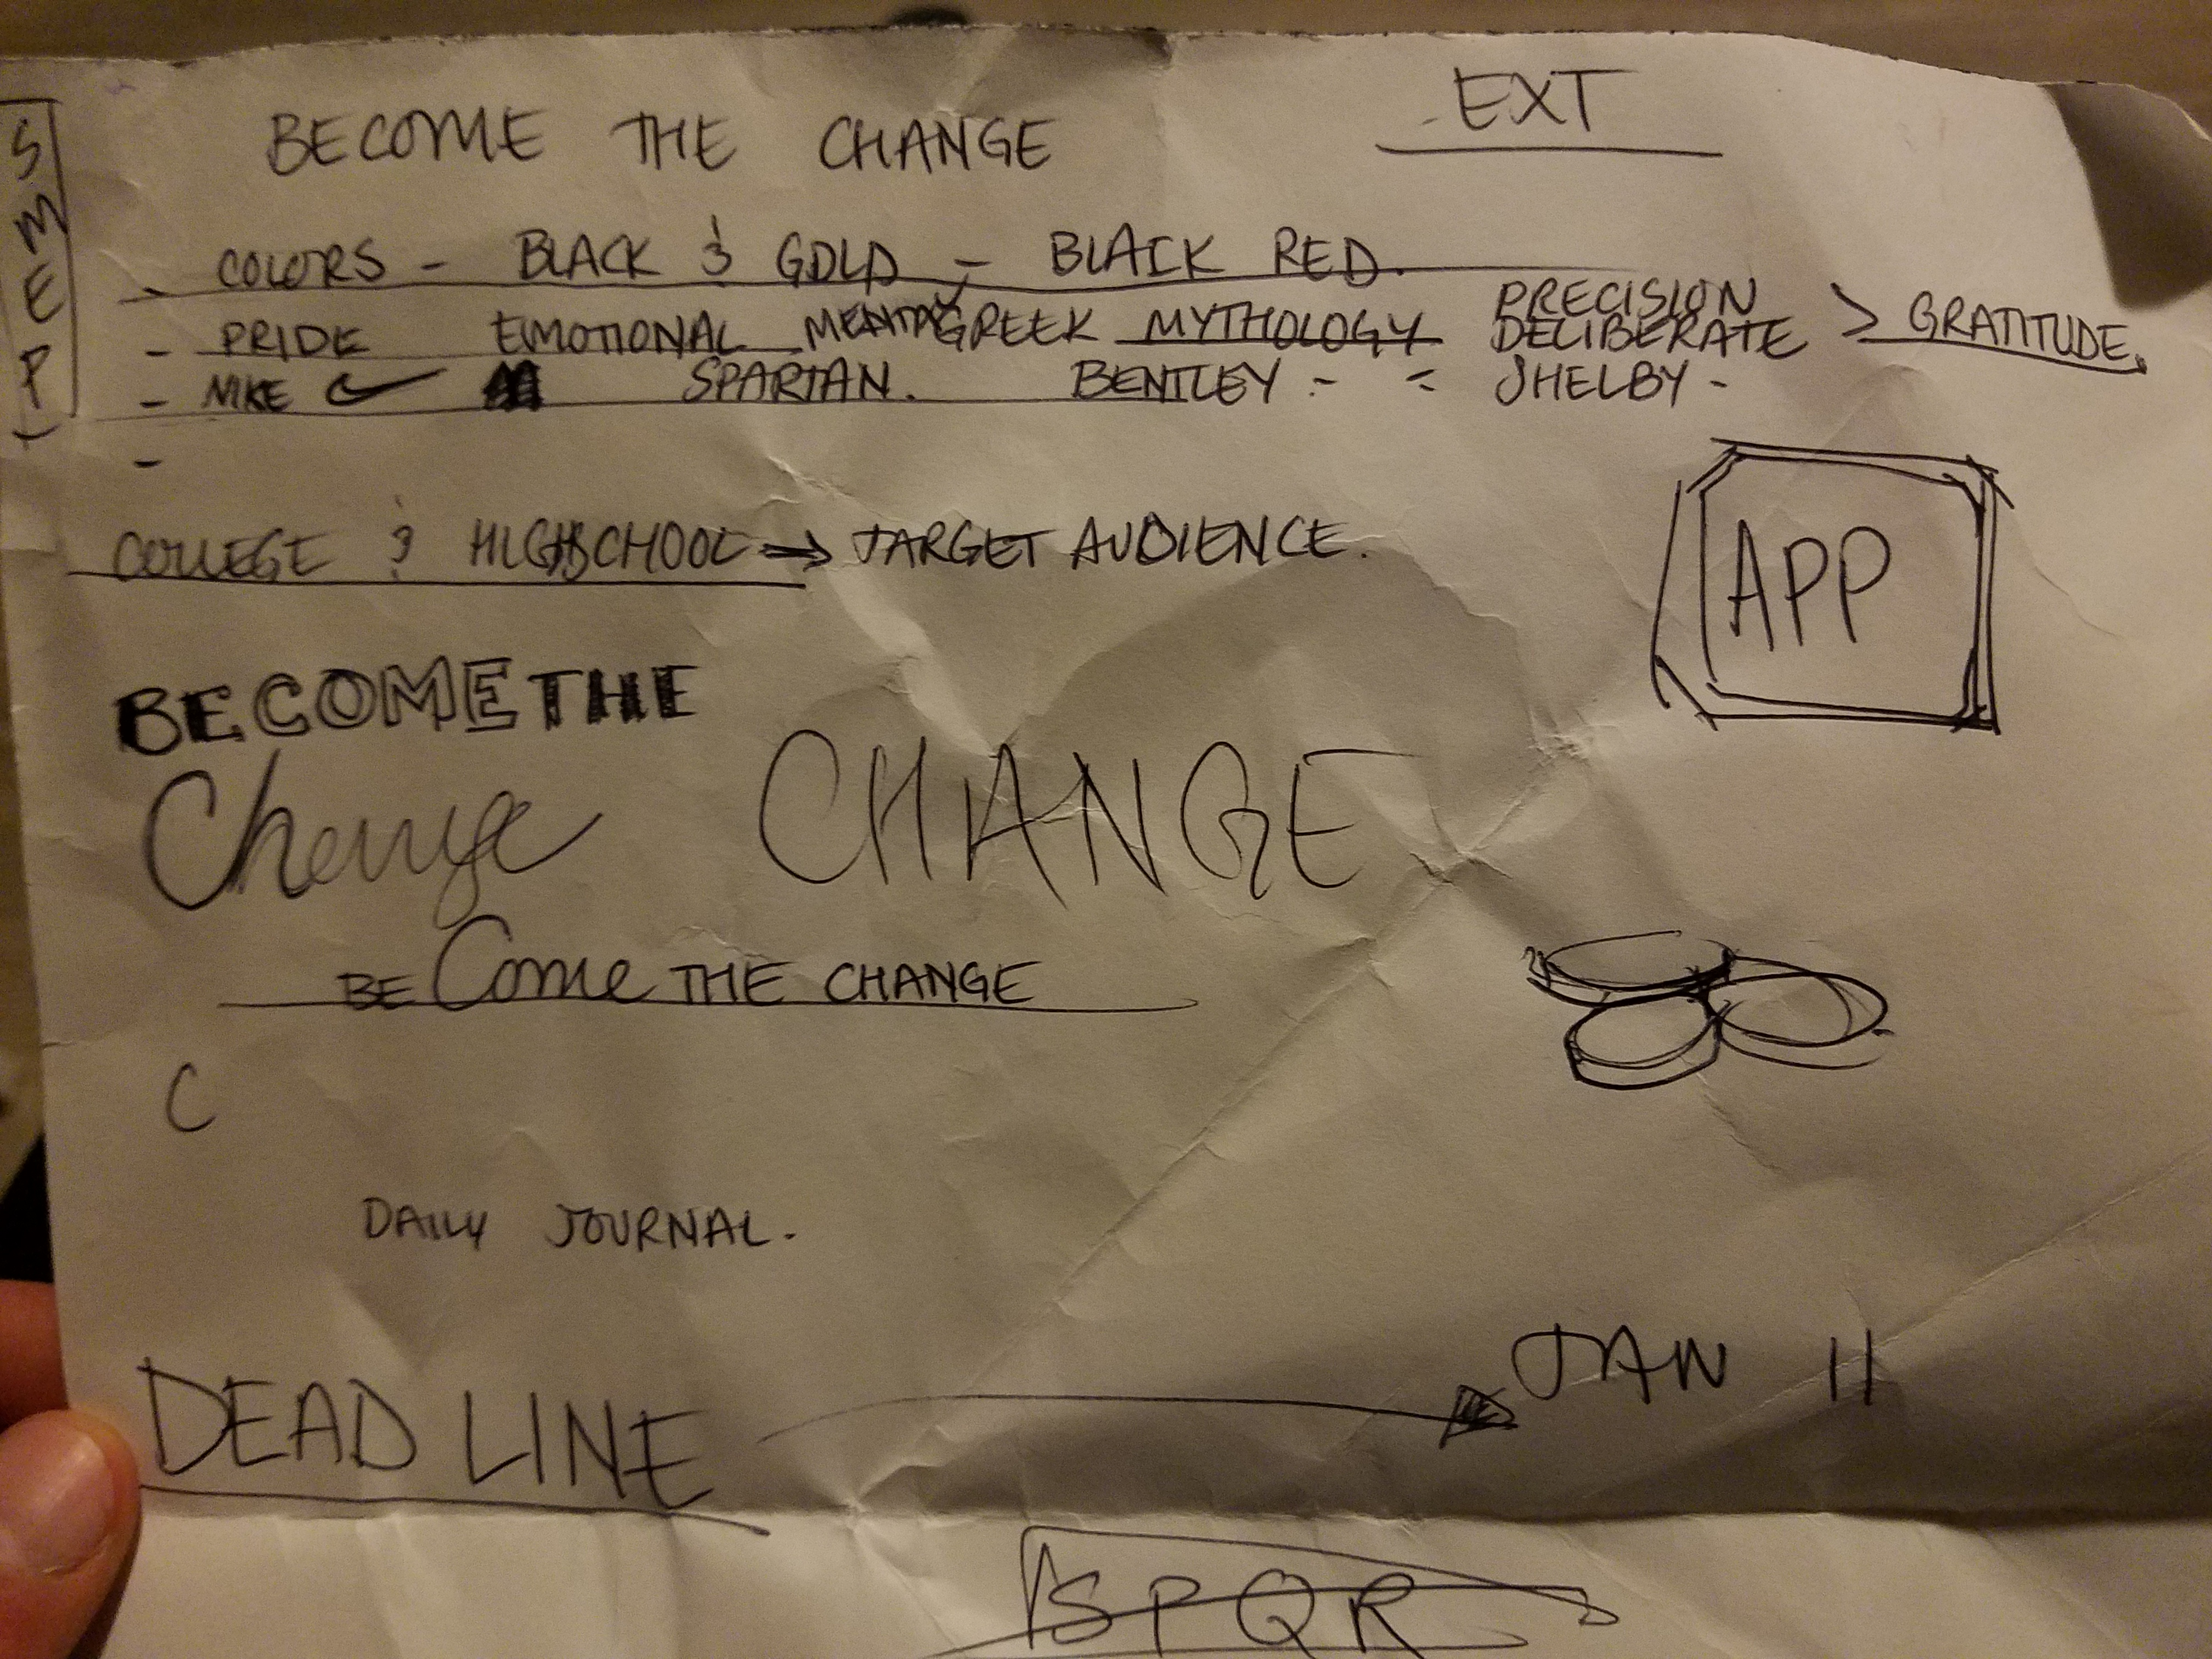 SMEP
BECOME THE CHANGE
EXT
- COLORS - BLACK & GOLD - BLACK RED.
- PRIDE EMOTIONAL MENTAL GREEK MYTHOLOGY PRECISION
DELIBERATE > GRATITUDE.
- NIKE SPARTAN. BENTLEY - - SHELBY -
-
COLLEGE & HIGHSCHOOL → TARGET AUDIENCE.
APP
BECOME THE
Change CHANGE
BECome THE CHANGE
C
DAILY JOURNAL.
DEADLINE → JAN 11
SPQR